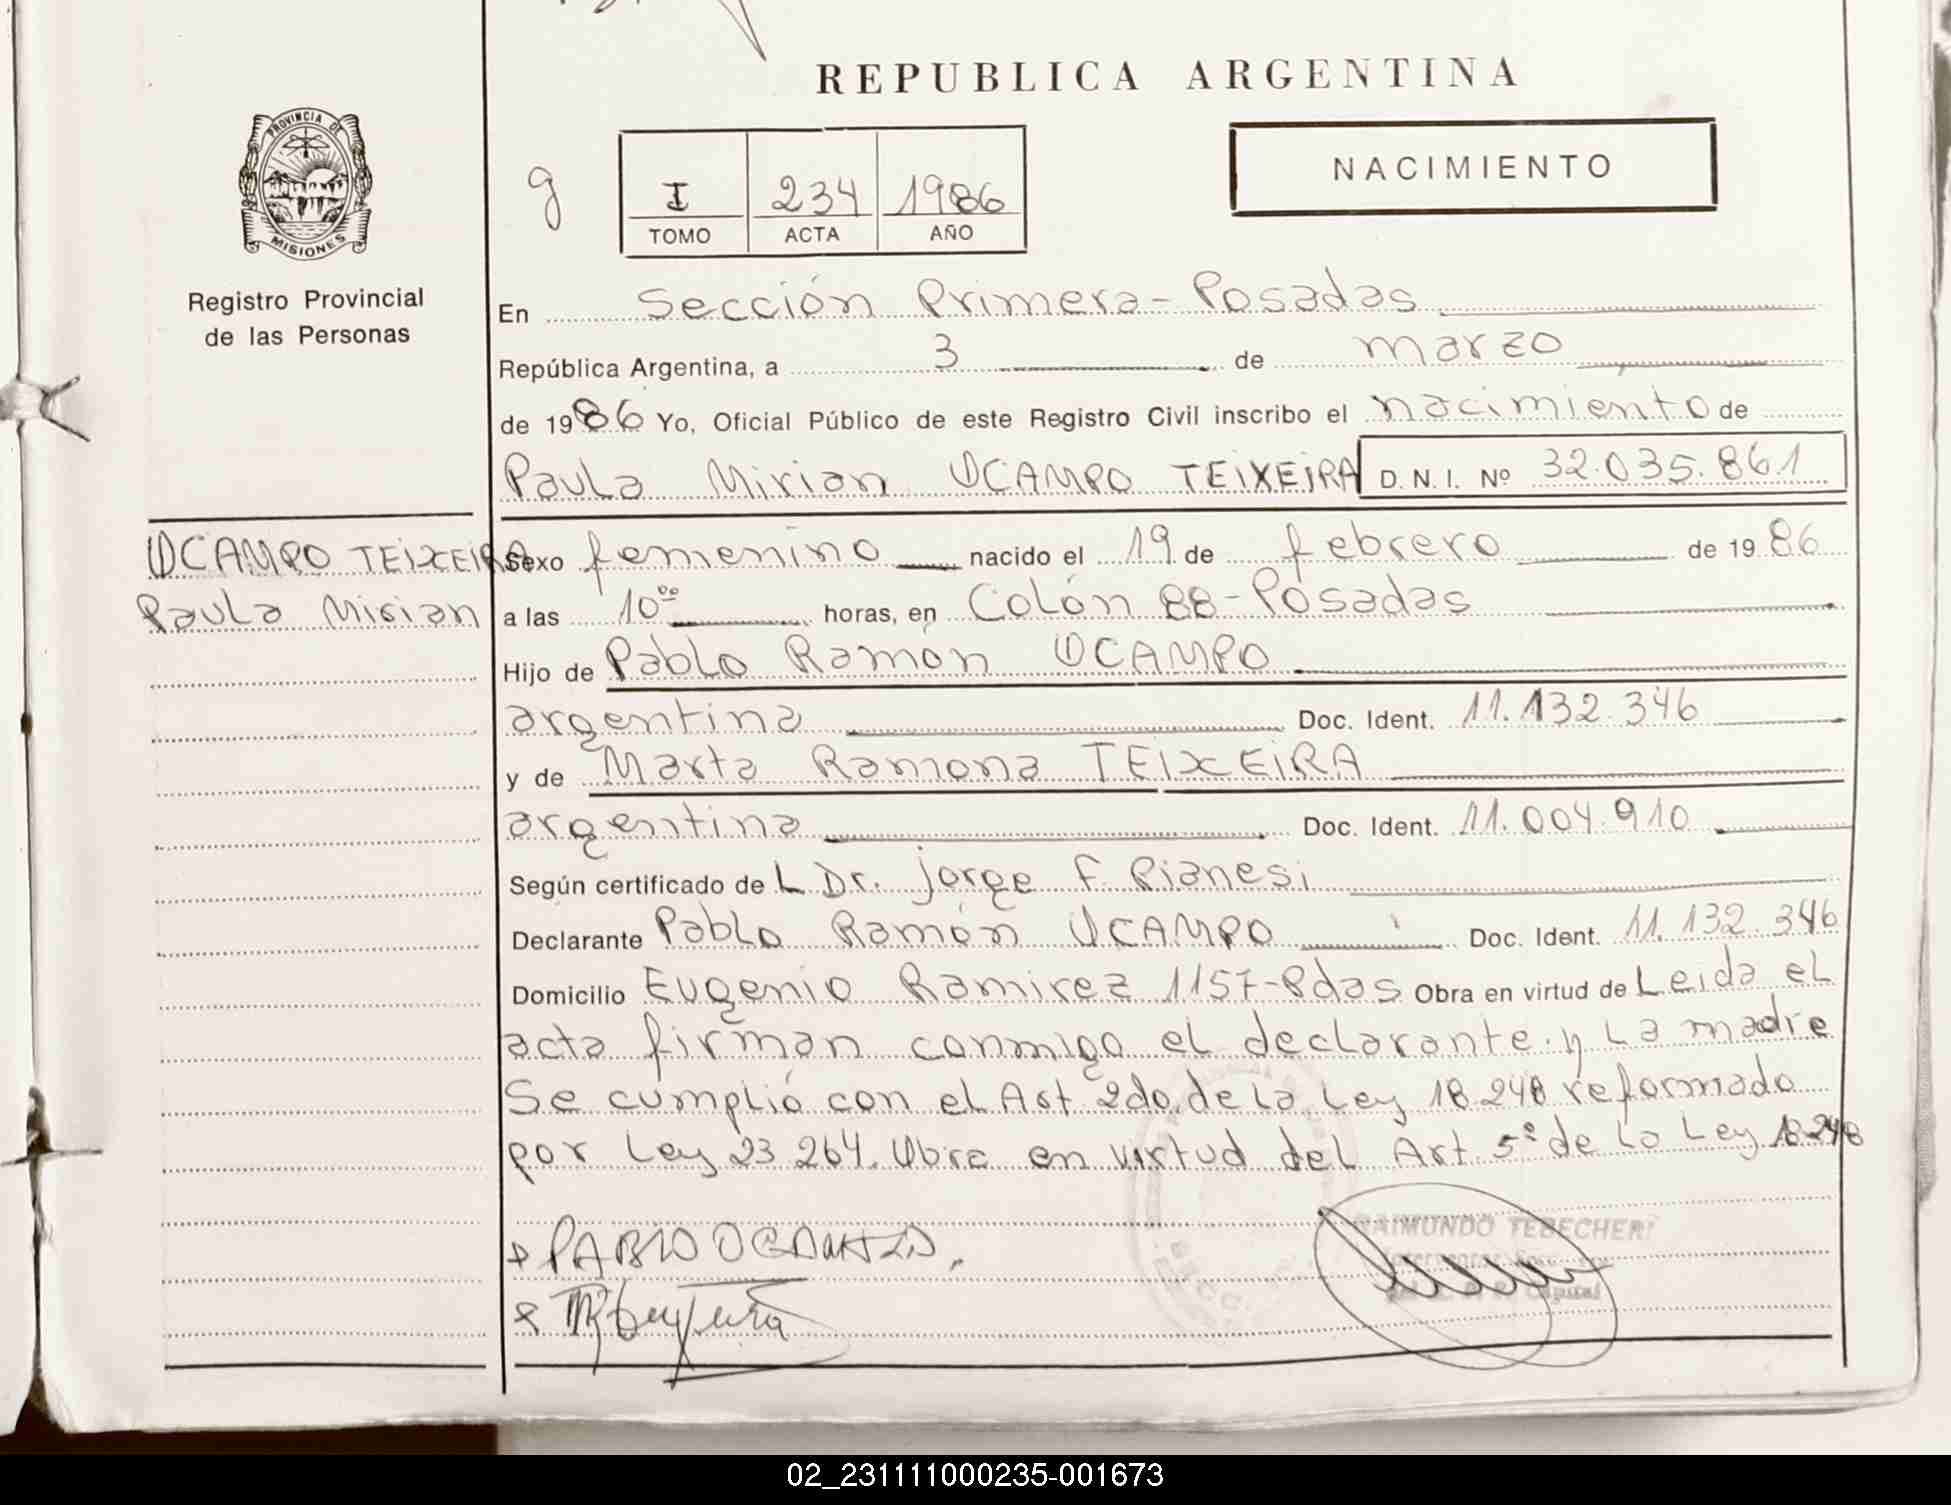 REPUBLICA ARGENTINA
PROVINCIA DE
MISIONES
Registro Provincial
de las Personas
g
I 234 1986
TOMO ACTA AÑO
NACIMIENTO
En Sección Primera - Posadas
República Argentina, a 3 de marzo
de 1986 Yo, Oficial Público de este Registro Civil inscribo el nacimiento de
Paula Mirian OCAMPO TEIXEIRA D.N.I. Nº 32.035.861
OCAMPO TEIXEIRA
Paula Mirian
Sexo femenino nacido el 19 de febrero de 1986
a las 10°° horas, en Colón 88 - Posadas
Hijo de Pablo Ramón OCAMPO
argentina Doc. Ident. 11.132.346
y de Marta Ramona TEIXEIRA
argentina Doc. Ident. 11.004.910
Según certificado del Dr. Jorge F. Pianesi
Declarante Pablo Ramón OCAMPO Doc. Ident. 11.132.346
Domicilio Eugenio Ramirez 1157-Pdas Obra en virtud de Leida el
acta firman conmigo el declarante y la madre
Se cumplió con el Art 2do de la Ley 18.248 reformado
por Ley 23.264. Obra en virtud del Art. 5º de la Ley 18.248
PABLO OCAMPO.
RAIMUNDO TEBECHERI
Capital
02_231111000235-001673